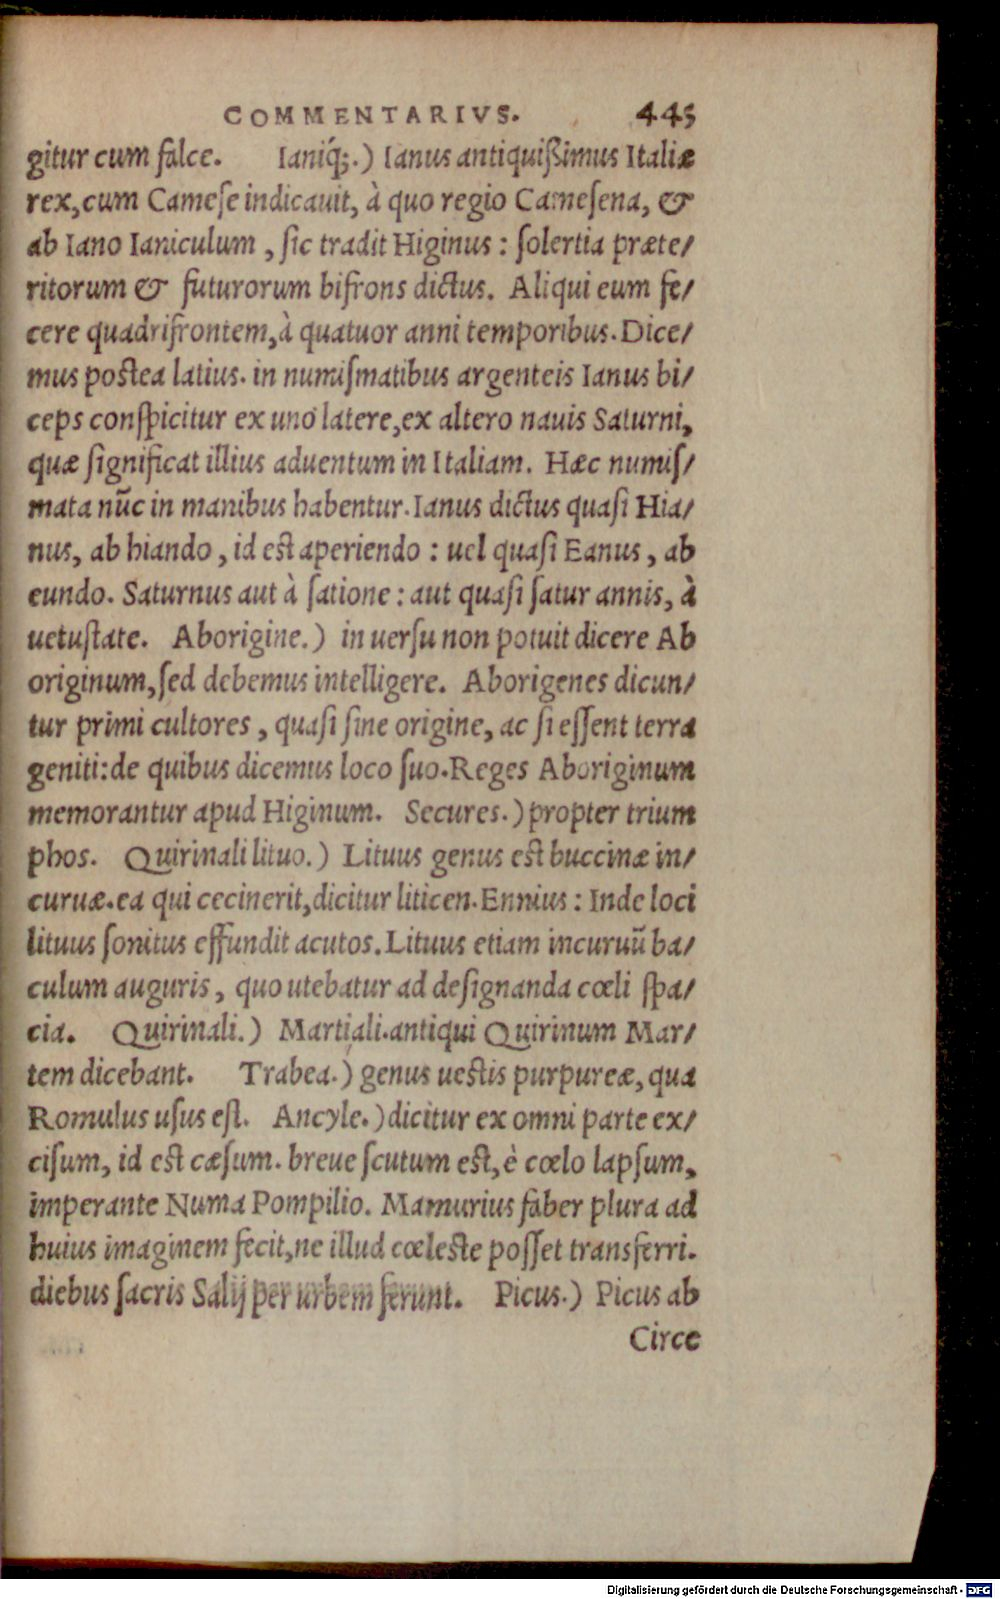 COMMENTARIVS. 445
gitur cum falce. Ianiq́;.) Ianus antiquißimus Italiæ
rex,cum Camese indicauit, à quo regio Camesena, &
ab Iano Ianiculum , sic tradit Higinus : solertia præte/
ritorum & futurorum bifrons dictus. Aliqui eum fe/
cere quadrifrontem,à quatuor anni temporibus.Dice/
mus postea latius. in numismatibus argenteis Ianus bi/
ceps conspicitur ex uno latere,ex altero nauis Saturni,
quæ significat illius aduentum in Italiam. Hæc numis/
mata nūc in manibus habentur.Ianus dictus quasi Hia/
nus, ab hiando , id est aperiendo : uel quasi Eanus , ab
eundo. Saturnus aut à satione : aut quasi satur annis, à
uetustate. Aborigine.) in uersu non potuit dicere Ab
originum,sed debemus intelligere. Aborigenes dicun/
tur primi cultores , quasi sine origine, ac si essent terra
geniti:de quibus dicemus loco suo.Reges Aboriginum
memorantur apud Higinum. Secures.) propter trium
phos. Quirinali lituo.) Lituus genus est buccinæ in/
curuæ.ea qui cecinerit,dicitur liticen.Ennius : Inde loci
lituus sonitus effundit acutos.Lituus etiam incuruū ba/
culum auguris , quo utebatur ad designanda cœli spa/
cia. Quirinali.) Martiali.antiqui Quirinum Mar/
tem dicebant. Trabea.) genus uestis purpureæ, qua
Romulus usus est. Ancyle.) dicitur ex omni parte ex/
cisum, id est cæsum. breue scutum est, è cœlo lapsum,
imperante Numa Pompilio. Mamurius faber plura ad
huius imaginem fecit,ne illud cœleste posset transferri.
diebus sacris Salij per urbem ferunt. Picus.) Picus ab
Circe
Digitalisierung gefördert durch die Deutsche Forschungsgemeinschaft - DFG